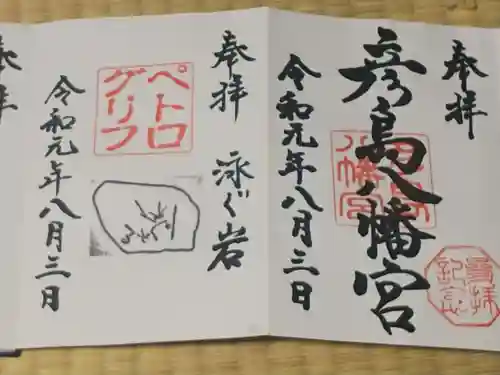 奉拝
彦島八幡宮
令和元年八月三日
奉拝
泳ぐ岩
ペトログリフ
令和元年八月三日
奉拝